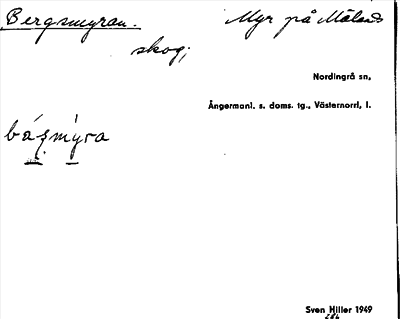 Bergsmyran. Myr på Målands
skog;
Nordingrå sn,
Ångermanl. s. doms. tg., Västernorrl, l.
básmýra
Sven Hiller 1949